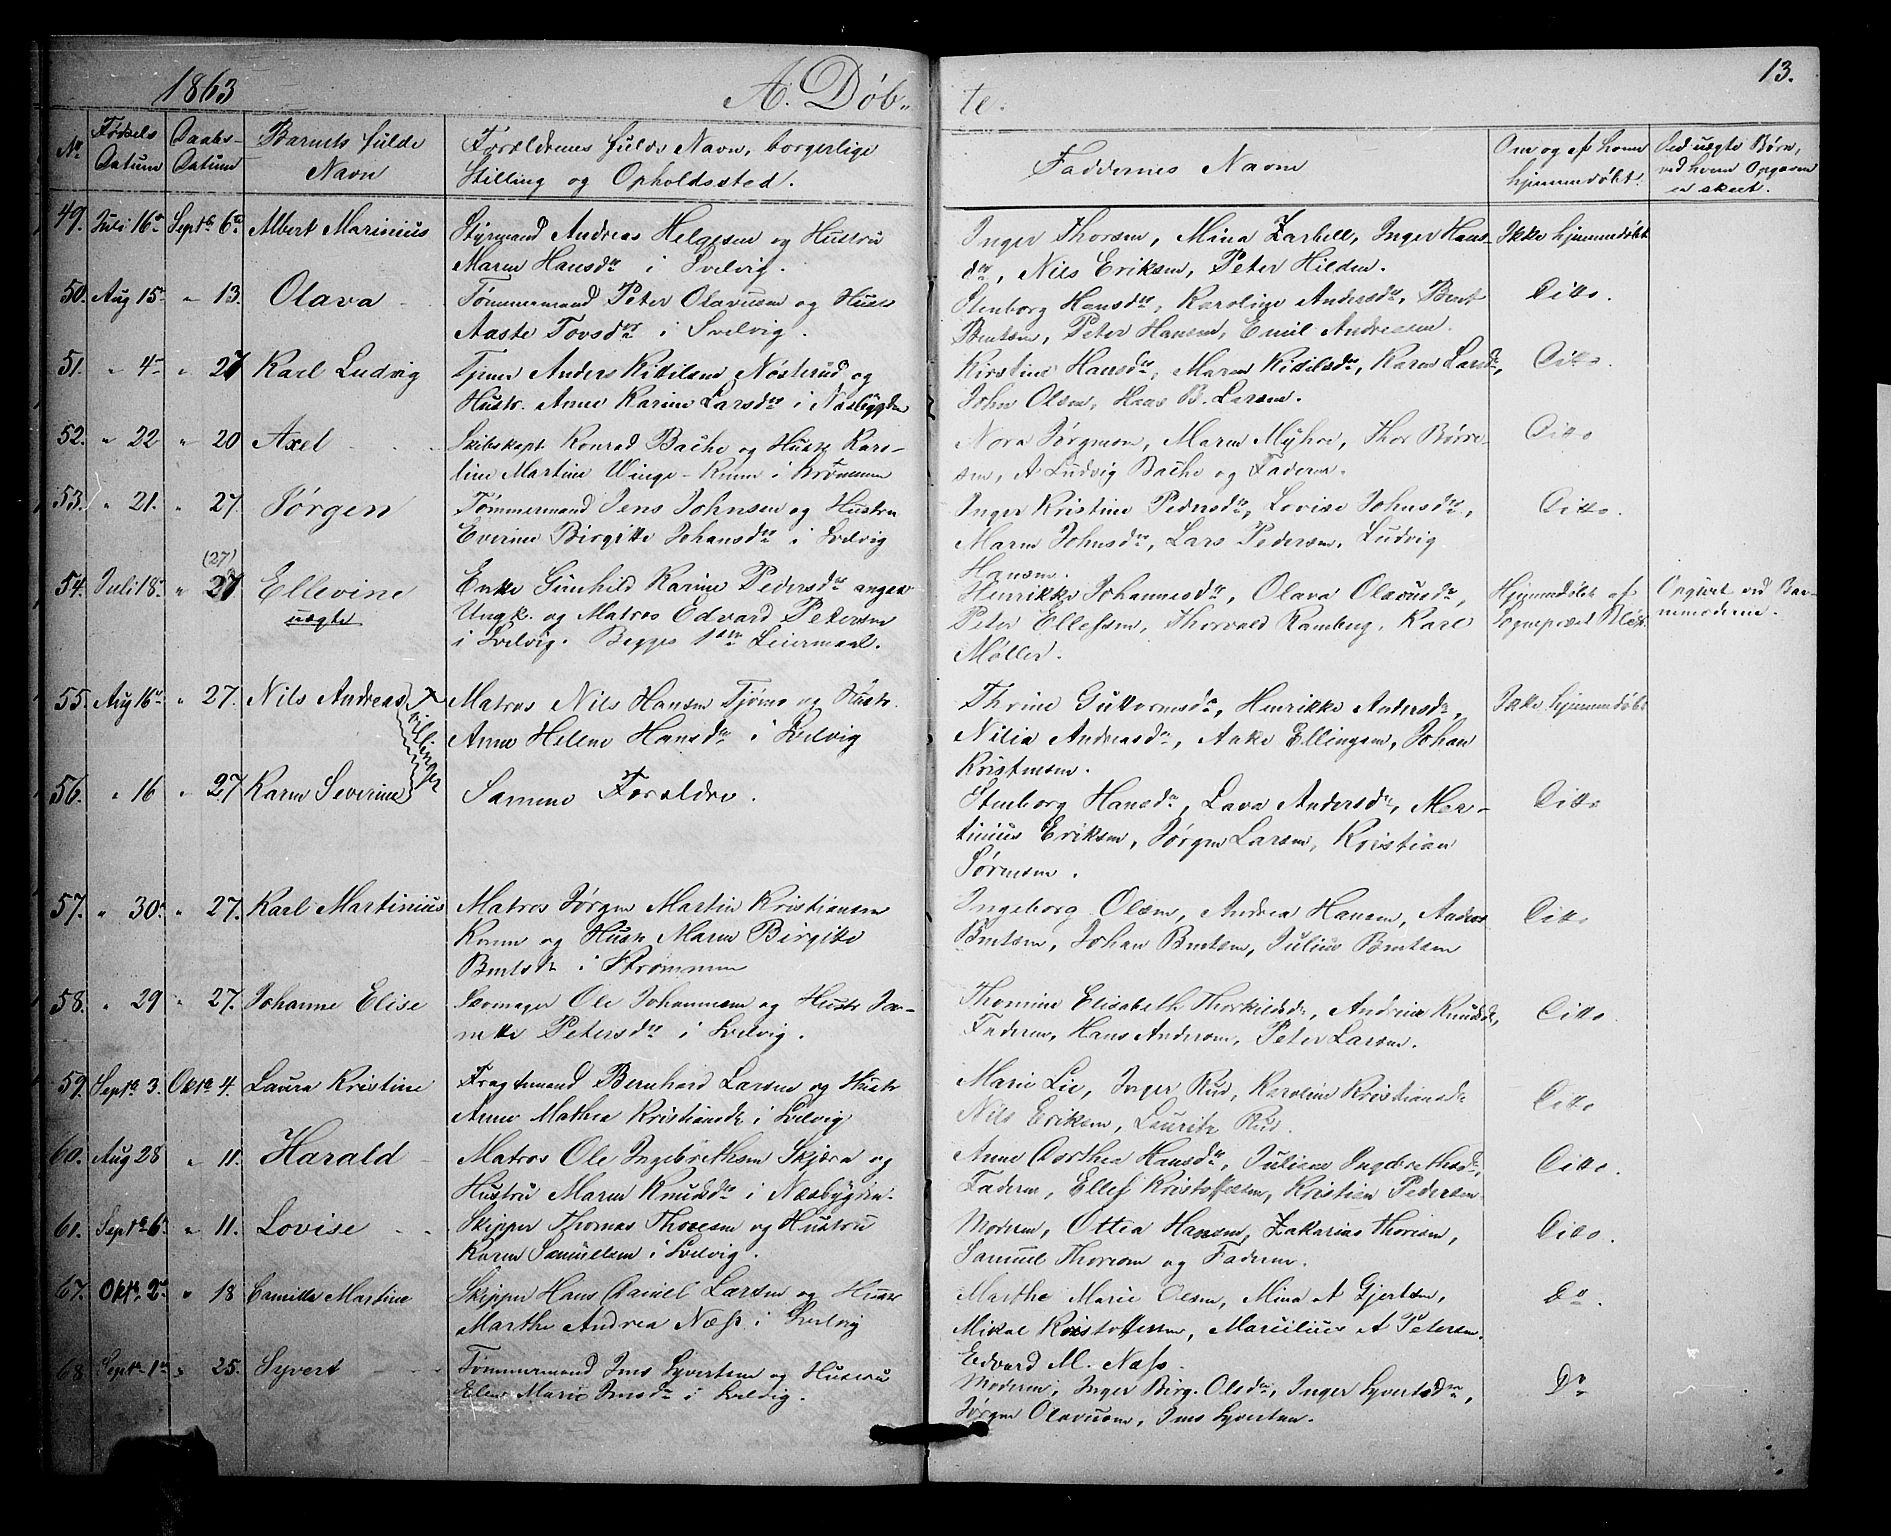 1863
A. Døb-
te.
13.
No
Fødsels Datum
Daabs-Datum
Barnets fulde Navn
Forældrenes fulde Navn, borgerlige
Stilling og Opholdssted.
Faddernes Navn
Om og af hvem hjemmedøbt.
Ved uægte Børn, ved hvem Opgaven er skeet.
49. Juli 16de Septbr 6te Albert Marinius Styrmand Andreas Helgesen og Hustru Inger Thoresen, Mina Zarbell, Inger Hans- Ikke hjemmedøbt
Maren Hansdtr i Svelvig. dtr, Nils Eriksen, Peter Hilden.
50. Aug 15 " 13. Olava Tømmermand Peter Olavusen og Hustr Stenborg Hansdtr, Karoline Andersdtr, Bent Ditto.
Aaste Tovsdtr i Svelvig. Bentsen, Peter Hansen, Emil Andresen.
51. " 4 " 27 Karl Ludvig Tjener Anders Kittilsen Nøsterud og Kirstine Hansdtr, Maren Kittilsdtr, Karen Larsdtr, Ditto.
Hustr. Anne Karine Larsdtr i Næsbygden John Olsen, Hans B. Larsen.
52. " 22 " 20 Axel Skibskapt. Konrad Bache og Hustr Karo- Nora Jørgensen, Maren Myhre, Thor Børre- Ditto
line Martine Winge - Komm i Strømmen sen, A Ludvig Bache og Faderen.
53. " 21. " 27. Jørgen Tømmermand Jens Johnsen og Hustru Inger Kristine Pedersdtr, Lovise Johnsdtr, Ditto.
Everine Birgitte Johansdtr i Svelvig Maren Johnsdtr, Lars Pedersen, Ludvig
Hansen.
(27)
54. Juli 18 " 27 Ellevine Enke Gunhild Karine Pedersdtr angav Henrikke Johannesdtr, Olava Olavusdtr, Hjemmedøbt af Opgivet ved Bar-
uægte Ungk. og Matros Edvard Petersen Peter Ellefsen, Thorvald Ramberg, Karl Sognepræst Blix. nemoderen.
i Svelvig. Begges 1ste Leiermaal. Møller.
55. Aug 16 " 27. Nils Andreas Tvillinger Matros Nils Hansen Tjømø og Hustr. Thrine Guttormsdtr, Henrikke Andersdtr, Ikke hjemmedøbt
Anne Helene Hansdtr i Svelvig Nilia Andreasdtr, Anke Ellingsen, Johan
Kristensen.
56. " 16 " 27 Karen Severine Samme Forældre. Stenborg Hansdtr, Lava Andersdtr, Mar- Ditto
tinius Eriksen, Jørgen Larsen, Kristian
Sørensen.
57. " 30 " 27. Karl Martinius Matros Jørgen Martin Kristiansen Ingeborg Olsen, Andrea Hansen, Anders Ditto
Komm og Hustr Maren Birgitte Bentsen, Johan Bentsen, Julius Bentsen
Bentsdtr i Strømmen
58. " 29 " 27. Johanne Elise Skomager Ole Johannesen og Hustr Ja- Thomine Elisabeth Thorkildsdtr, Andrine Knudsdtr, Ditto.
nette Petersdtr i Svelvig. Faderen, Hans Andersen, Peter Larsen.
59. Septbr 3. Oktbr 4. Laura Kristine Fragtemand Bernhard Larsen og Hustr Marie Lie, Inger Rud, Karoline Kristiansdtr Ditto
Anne Mathea Kristiansdtr i Svelvig Nils Eriksen, Lauritz Rud.
60. Aug 28 " 11. Harald Matros Ole Ingebrethsen Skjæra og Anne Dorthea Hansdtr, Juliane Ingebrethsdtr, Ditto.
Hustru Maren Knudsdtr i Næsbygden. Faderen, Ellef Kristoffersen, Kristian Pedersen.
61. Septbr 6 " 11. Lovise Skipper Thomas Thoresen og Hustru Moderen, Ottea Hansen, Zakarias Thoresen, Ditto.
Karen Samuelsen i Svelvig. Samuel Thoresen og Faderen.
67. Oktbr. 2 " 18 Camilla Martine Skipper Hans Daniel Larsen og Hustr Marthe Marie Olsen, Mina A Gjertsen, Do.
Marthe Andrea Næss i Svelvig Mikal Kristoffersen, Marcilius A Petersen
Edvard M. Næss.
68 Septbr 1 " 25. Syvert Tømmermand Jens Syvertsen og Hustru Moderen, Inger Birg. Olsdtr, Inger Syvertsdtr, Do
Elen Marie Jensdtr i Svelvig. Jørgen Olavusen, Jens Syvertsen.